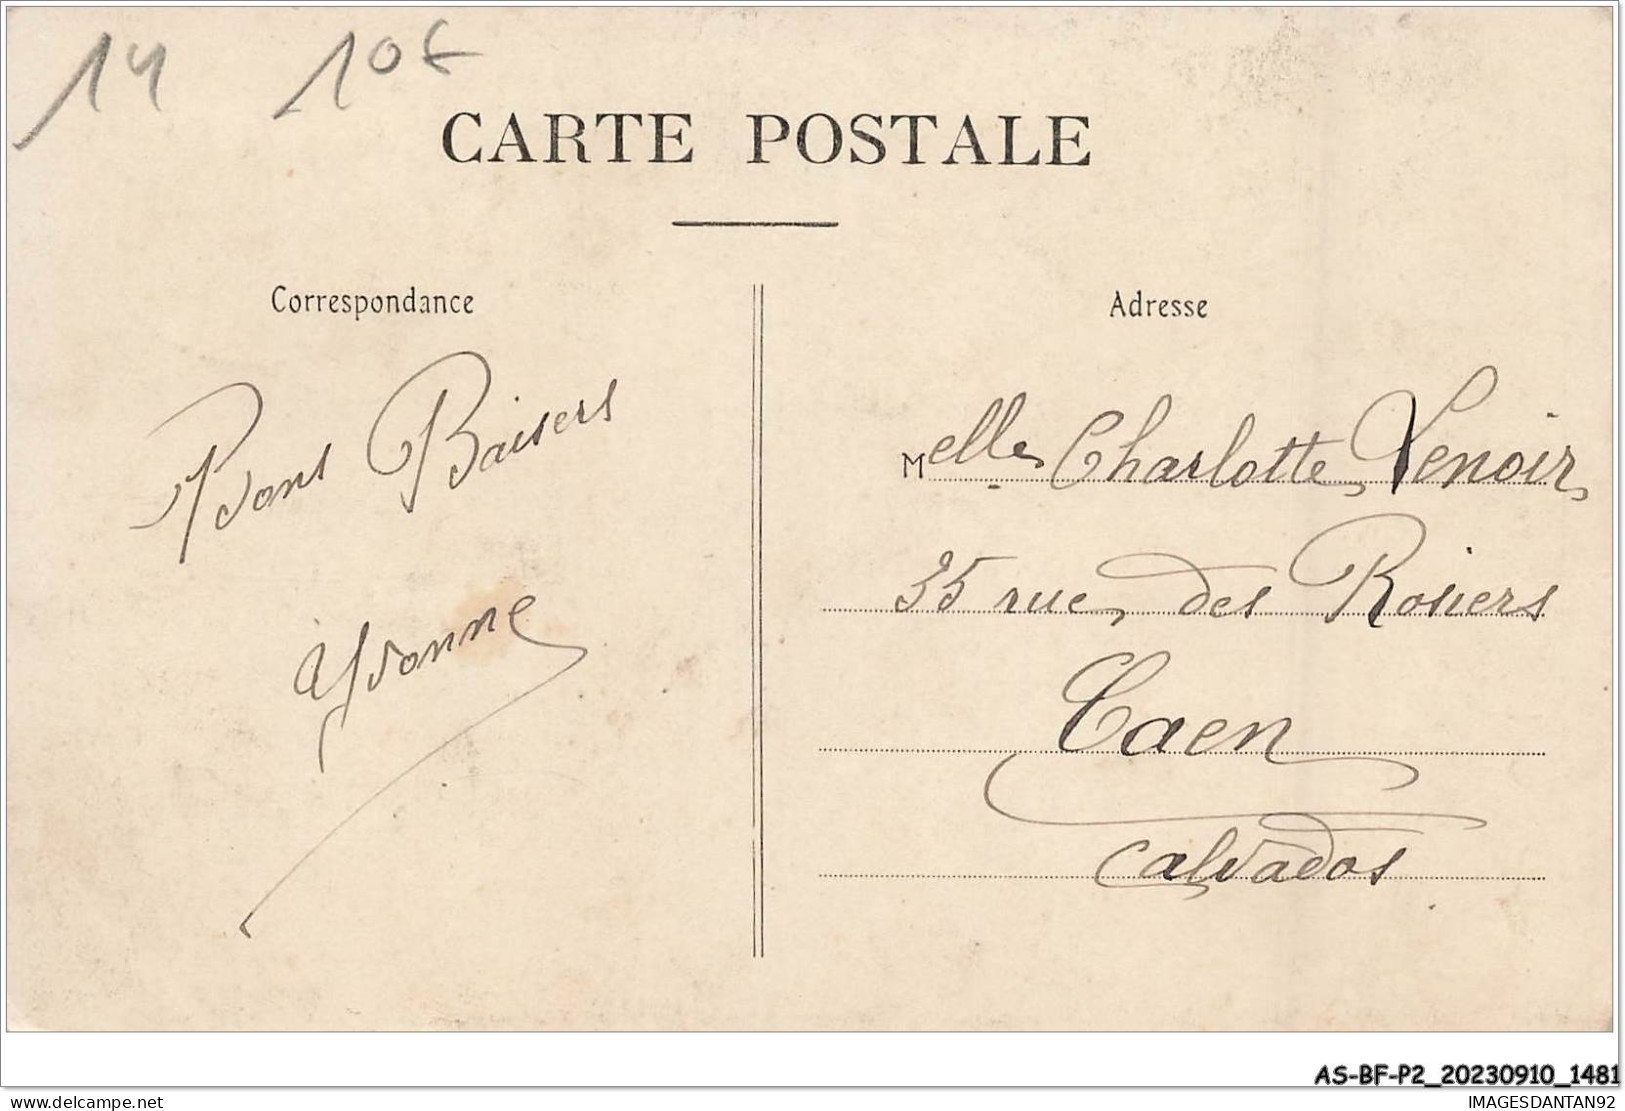 14 10€
CARTE POSTALE
Correspondance
Adresse
Bons Baisers
Yvonne
Melle Charlotte Lenoir
35 rue des Rosiers
Caen
Calvados
AS-BF-P2_20230910_1481
delcampe.net
IMAGESDANTAN92